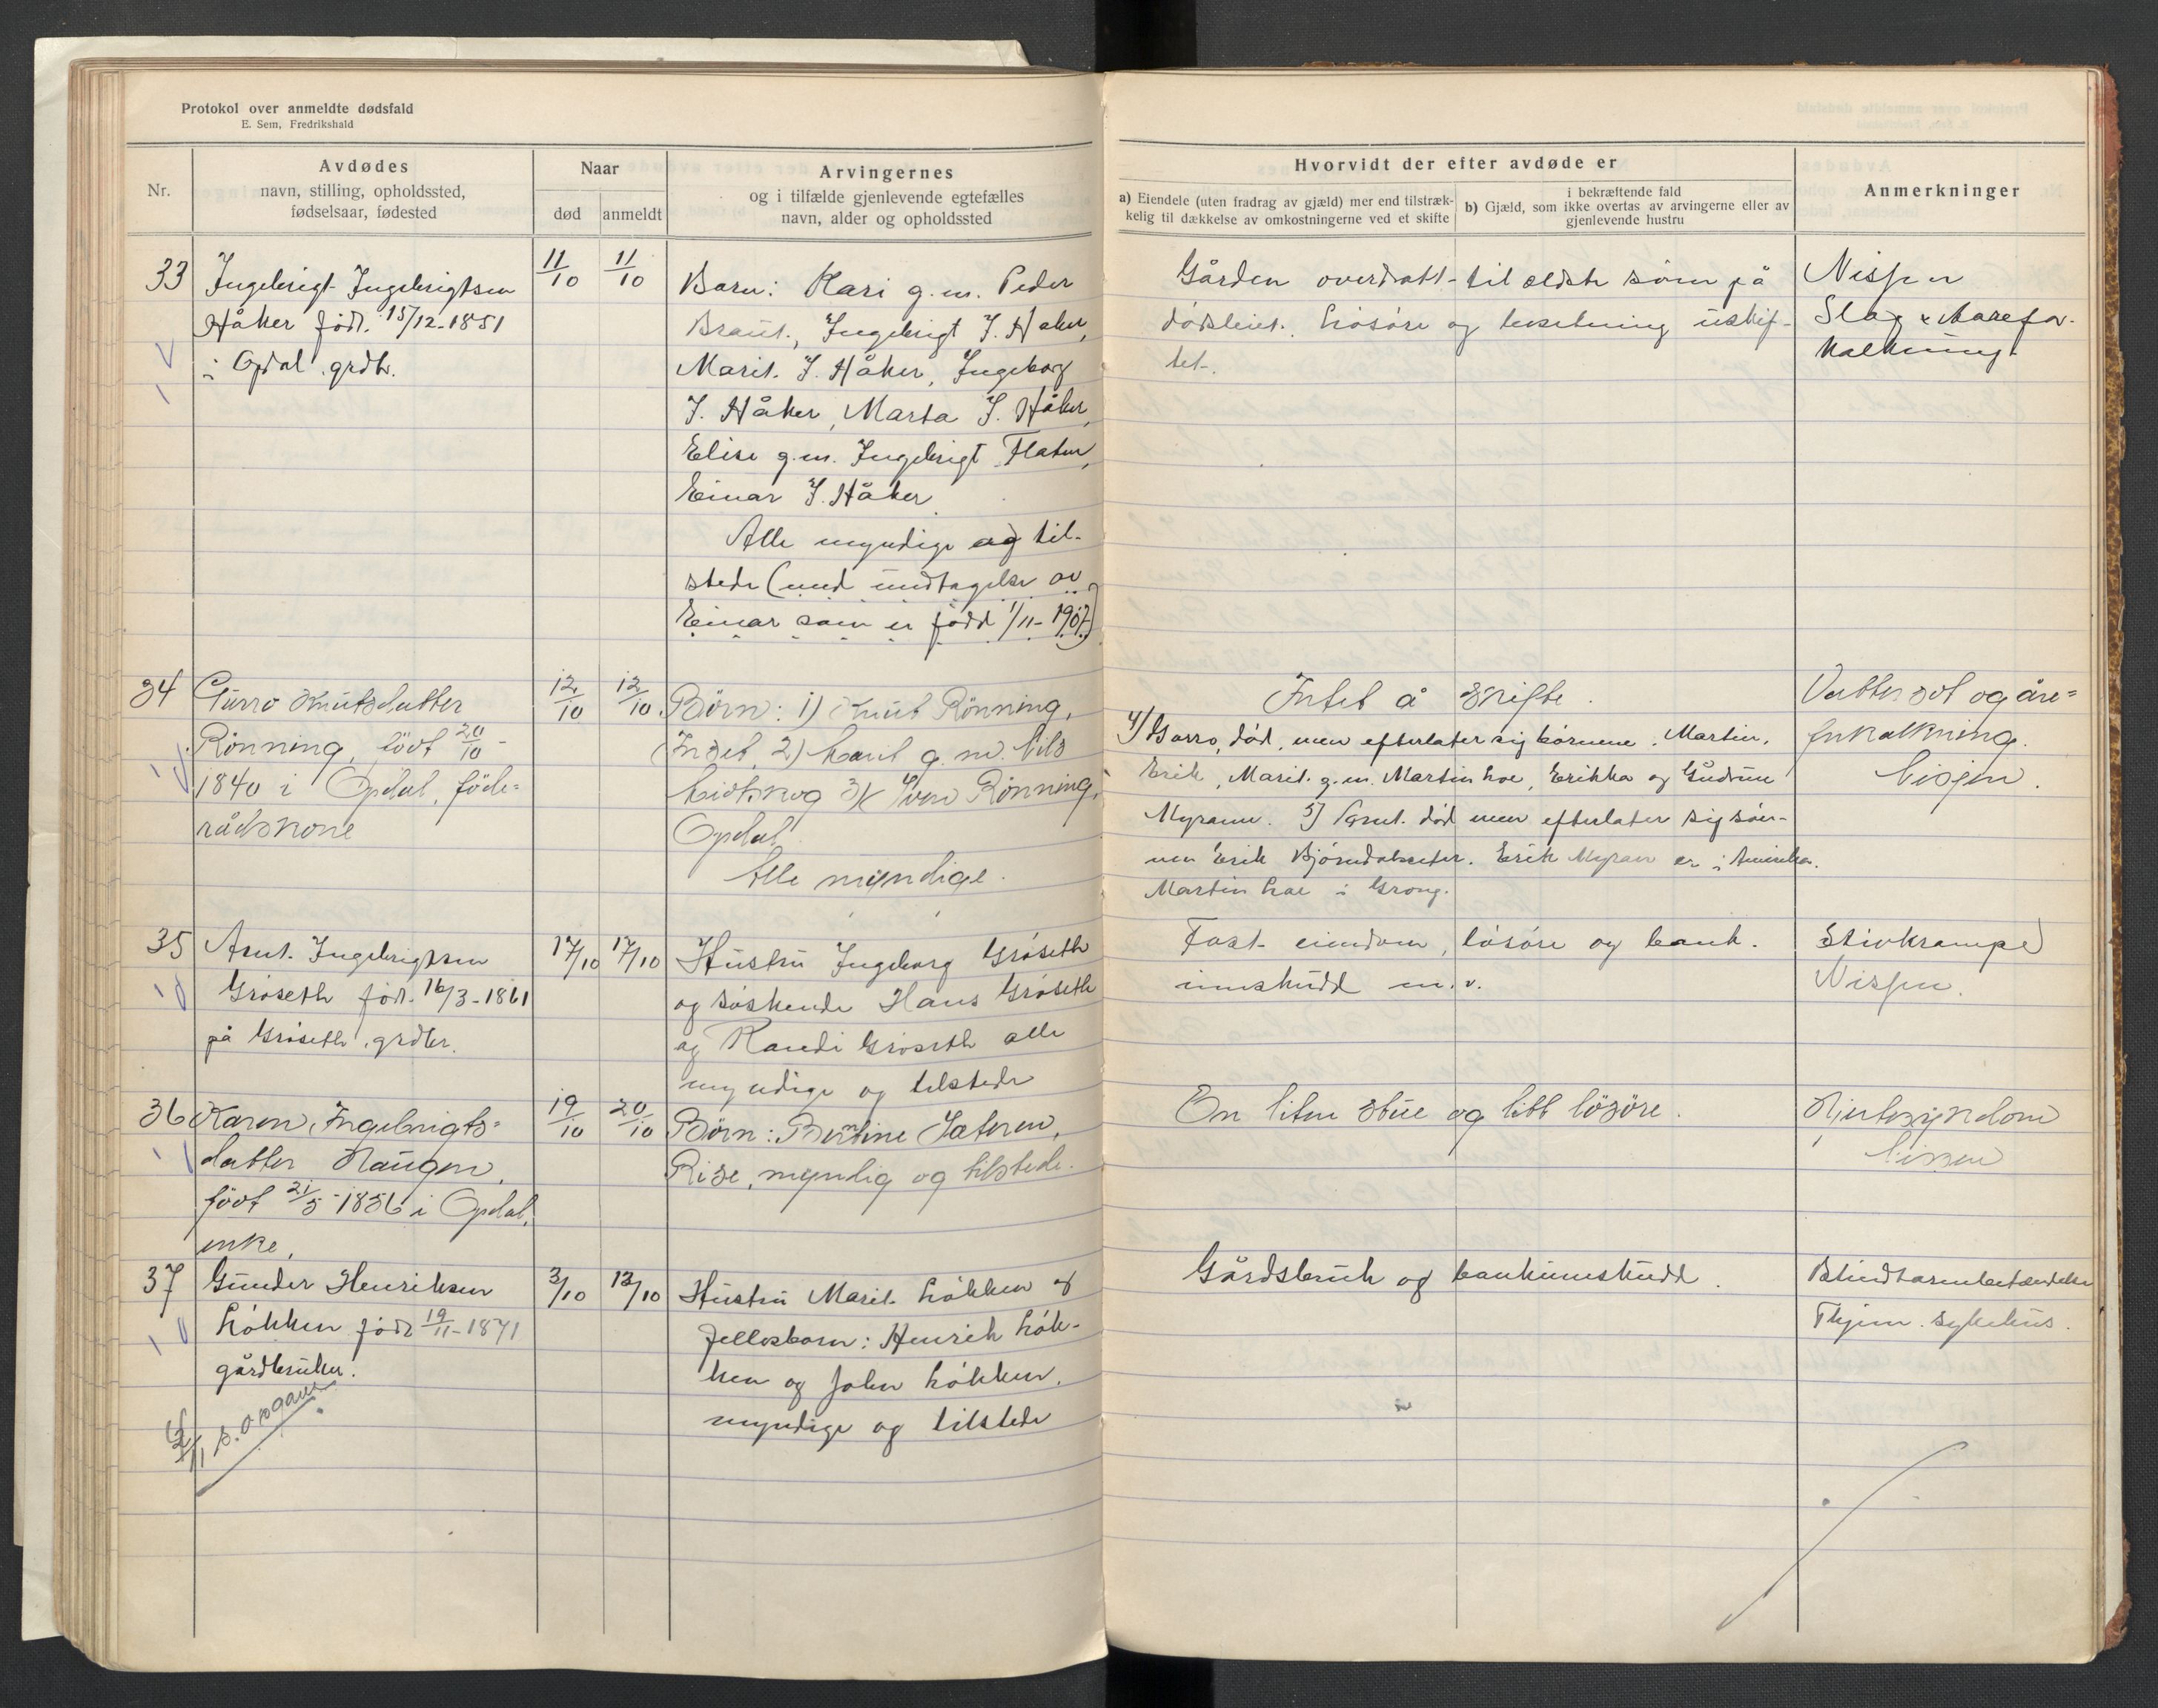 Protokol over anmeldte dødsfald
E. Sem, Fredrikshald
Nr.
Avdødes
navn, stilling, opholdssted,
fødselsaar, fødested
Naar
død
anmeldt
Arvingernes
og i tilfælde gjenlevende egtefælles
navn, alder og opholdssted
Hvorvidt der efter avdøde er
a) Eiendele (uten fradrag av gjæld) mer end tilstræk-
kelig til dækkelse av omkostningerne ved et skifte
i bekræftende fald
b) Gjæld, som ikke overtas av arvingerne eller av
gjenlevende hustru
Anmerkninger
33
Ingebrigt Ingebrigtsen
Håker född 15/12-1851
i Opdal. grdbr.
11/10
11/10
Barn: Kari g.m. Peder
Braut, Ingebrigt I. Håker,
Marit I. Håker, Ingeborg
I. Håker, Marta I. Håker,
Elise g.m. Ingebrigt Flaten,
Einar I. Håker.
Alle myndige og til-
stede (med undtagelse av
Einar som er född 1/11-1907)
Gården overdratt til eldste sönn på
dödsleiet. Lösöre og besetning uskif-
tet.
Nissen
Slag & Aarefor-
kalkning
34
Gurro Knutsdatter
Rönning, född 20/10-
1840 i Opdal, föde-
rådskone
12/10
12/10
Börn: 1) Knut Rönning,
Indset, 2) Marit g. m. Nils
3) Sven Rönning,
Opdal.
Alle myndige.
Intet å skifte.
4) Gorro, död, men efterlater sig börnene: Martin,
Erik, Marit g.m. Martin Loe, Erikka og Gudrun
Myrann. 5) Arnt död men efterlater sig sön-
nen Erik Björndalseter. Erik Myran er i Amerika.
Martin Loe i Grong.
Vattersot og åre-
forkalkning.
Nissen.
35
Arnt Ingebrigtsen
Gröseth född 16/3-1861
på Gröseth, grdbr.
17/10
17/10
Hustru Ingeborg Gröseth
og söskende Hans Gröseth
og Randi Gröseth alle
myndige og tilstede
Fast eiendom, lösöre og bank-
innskudd m.v.
Stivkrampe
Nissen.
36
Karen Ingebrigts-
datter Haugen,
född 21/5-1856 i Opdal,
enke,
19/10
20/10
Börn: Berntine Sæteren,
Rise, myndig og tilstede.
En liten stue og litt lösöre.
Hjertesykdom
Nissen
37
Gunder Henriksen
Lökken född 19/11-1871
gårdbruker.
3/10
13/10
Hustru Marit Lökken &
fellesbarn: Henrik Lök-
ken og John Lökken.
myndige og tilstede
Gårdsbruk og bankinnskudd.
Blindtarmbetændelse
Thjem. sykehus.